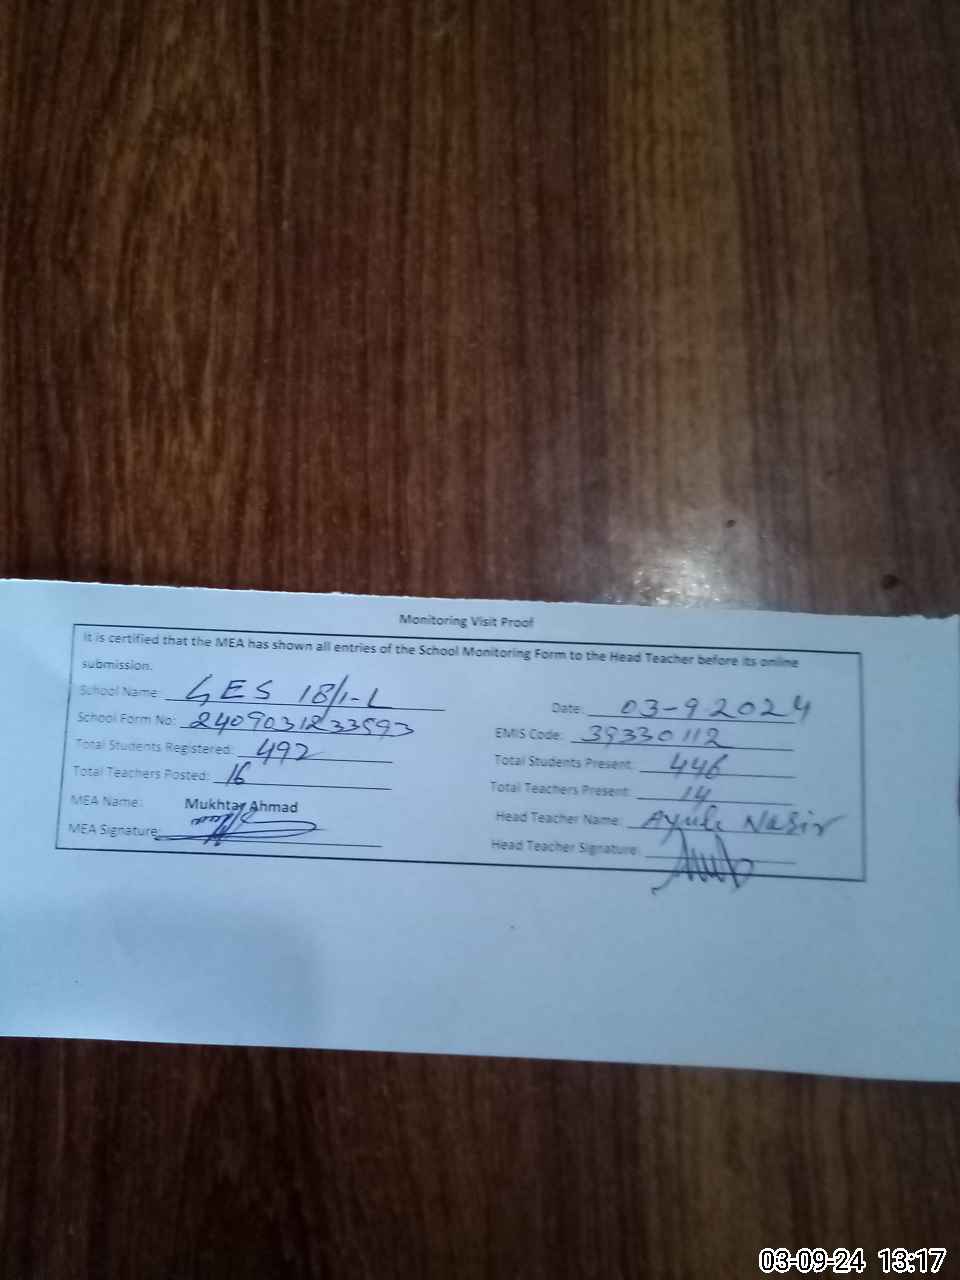 Monitoring Visit Proof
It is certified that the MEA has shown all entries of the School Monitoring Form to the Head Teacher before its online
submission.
School Name: GES 18/1-L
Date: 03-9-2024
School Form No: 2409031233593
EMIS Code: 39330112
Total Students Registered: 492
Total Students Present: 446
Total Teachers Posted: 16
Total Teachers Present: 14
MEA Name: Mukhtar Ahmad
Head Teacher Name: Nasir
MEA Signature:
Head Teacher Signature:
03-09-24 13:17